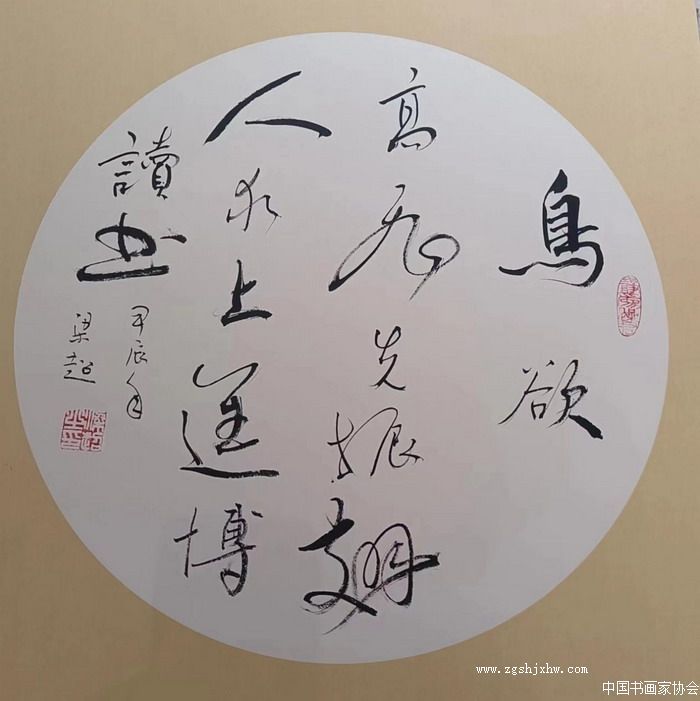 鳥欲
高飛先振翅
人求上進博
讀書
甲辰年
梁超
www.zgshjxhw.com
中国书画家协会